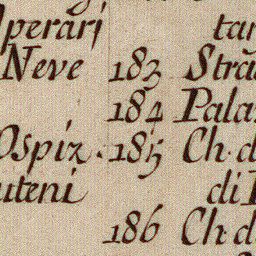 Operarj tar
Neve 183 Strã
184 Pala
Ospiz. 185 Ch. d
uteni di
186 Ch d